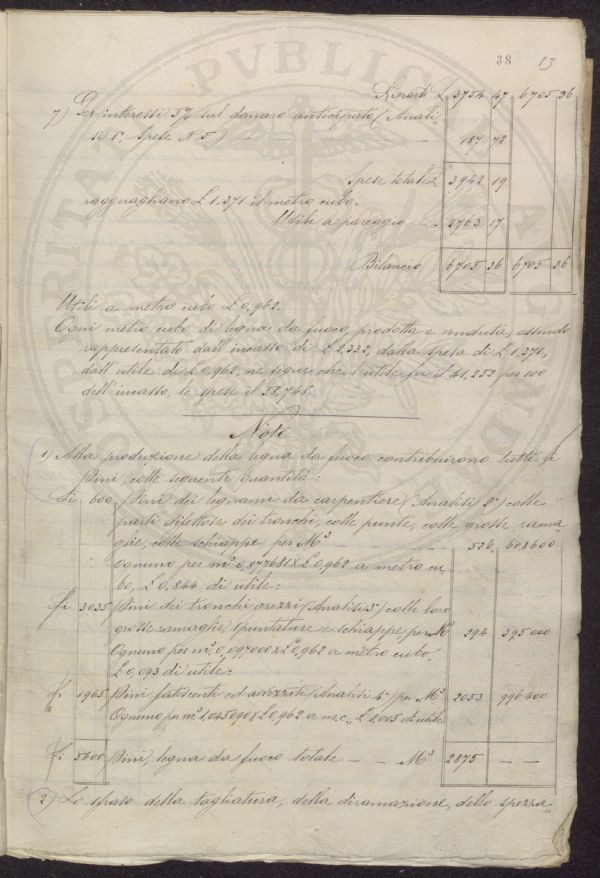 38 13
Riporti £ 3754 47 6705 36
7) Per interessi 5% sul danaro anticipato (Anali-
si 1ª Spese N 5) — — — 187 72
Spese totali £ 3942 19
ragguagliano £ 1.371 il metro cubo.
Utili a pareggio — - 2763 17
Bilancio 6705 36 6705 36
Utili a metro cubo £ 0,962.
Ogni metro cubo di legna da fuoco, prodotta e venduta, essendo
rappresentato dall'incasso di £ 2,333, dalla spesa di £ 1.371,
dall'utile di £ 0,962, ne segue che l'utile fu il 41,252 per 100
dell'incasso, le spese il 58,748.
Note
1) Alla produzione della legna da fuoco contribuirono tutti i
Pini, colle seguenti quantità:
Li 600 Pini di legnami da carpentiere (Analisi 2ª) colle
parti difettose dei tronchi, colle punte, colle grosse rama-
glie, colle schiappe, per M³ — — — 526 608600
Ognuno per m³ 0,877681 x £ 0,962 a metro cu-
bo, £ 0,844 di utile:
Li 3035 Pini dei tronchi mozzi (Analisi 3ª) colle loro
grosse ramaglie, spuntature e schiappe per M³ 294 395000
Ognuno per m³ 0,097000 x £ 0,962 a metro cubo,
£ 0,093 di utile:
Li 1965 Pini fatiscenti ed avvizziti (Analisi 4ª) per M³ 2053 996400
Ognuno per m³ 1,045090 x £ 0,962 a m.c., £ 1.005 di utile
Li 5600 Pini, legna da fuoco totale — — M³ 2875 — —
2) Lo sfraso della tagliatura, della diramazione, dello spezza-